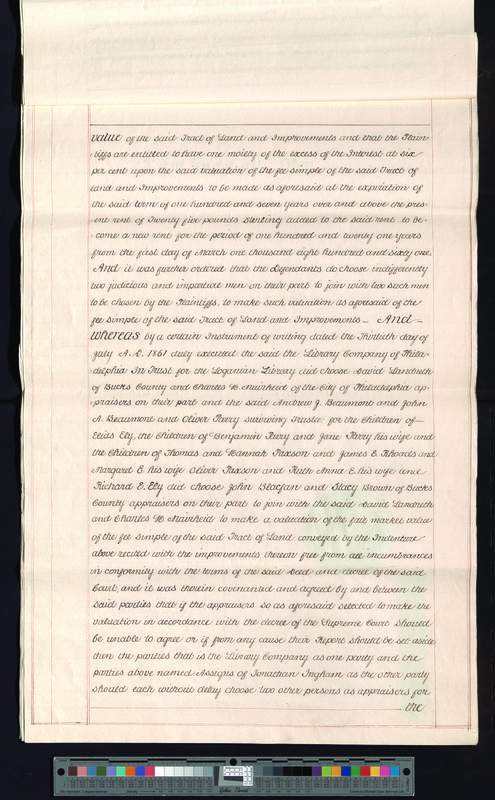 value of the said Tract of Land and Improvements and that the Plain-
tiffs are entitled to have one moiety of the excess of the Interest at six
per cent upon the said valuation of the fee simple of the said Tract of
land and Improvements to be made as aforesaid at the expiration of
the said term of one hundred and seven years over and above the pres-
ent rent of Twenty five pounds Sterling added to the said rent to be-
come a new rent for the period of one hundred and twenty one years
from the first day of March one thousand eight hundred and sixty one.
And it was further ordered that the Defendants do choose indifferently
two judicious and impartial men on their part to join with two such men
to be chosen by the Plaintiffs, to make such valuation as aforesaid of the
fee simple of the said Tract of Land and Improvements — And —
Whereas by a certain Instrument of writing dated the Thirtieth day of
July A.D. 1861 duly executed the said the Library Company of Phila-
delphia In Trust for the Loganian Library did choose David Landreth
of Bucks County and Charles H. Muirheid of the City of Philadelphia ap-
praisers on their part and the said Andrew J. Beaumont and John
A. Beaumont and Oliver Parry surviving Trustee for the Children of —
Elias Ely, the Children of Benjamin Parry and Jane Parry his wife and
the Children of Thomas and Hannah Paxson and James E. Rhoads and
Margaret E. his wife Oliver Paxson and Ruth Anna E. his wife and
Richard E. Ely did choose John Blackfan and Stacy Brown of Bucks
County appraisers on their part to join with the said David Landreth
and Charles H. Muirheid to make a valuation of the fair market value
of the fee simple of the said Tract of Land conveyed by the Indenture
above recited with the improvements thereon free from all incumbrances
in conformity with the terms of the said Deed and decree of the said
Court, and it was therein covenanted and agreed by and between the
said parties that if the appraisers so as aforesaid selected to make the
valuation in accordance with the decree of the Supreme Court should
be unable to agree or if from any cause their Report should be set aside
then the parties that is the Library Company as one party and the
parties above named Assigns of Jonathan Ingham as the other party
should each without delay choose two other persons as appraisers for
the